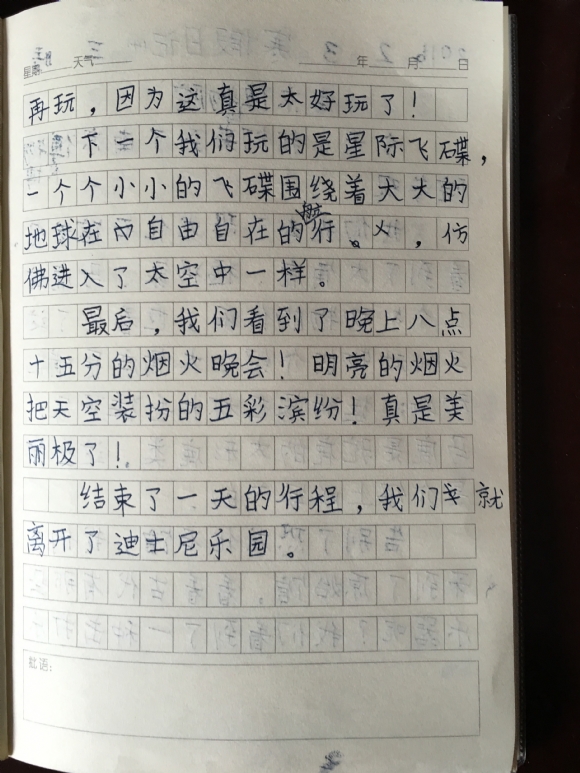 星期 天气 年 月 日
再玩，因为这真是太好玩了！
下一个我们玩的是星际飞碟，
一个个小小的飞碟围绕着大大的
地球在内自由自在的航行。，仿
佛进入了太空中一样。
最后，我们看到了晚上八点
十五分的烟火晚会！明亮的烟火
把天空装扮的五彩滨纷！真是美
丽极了！
结束了一天的行程，我们就
离开了迪士尼乐园。
批语：